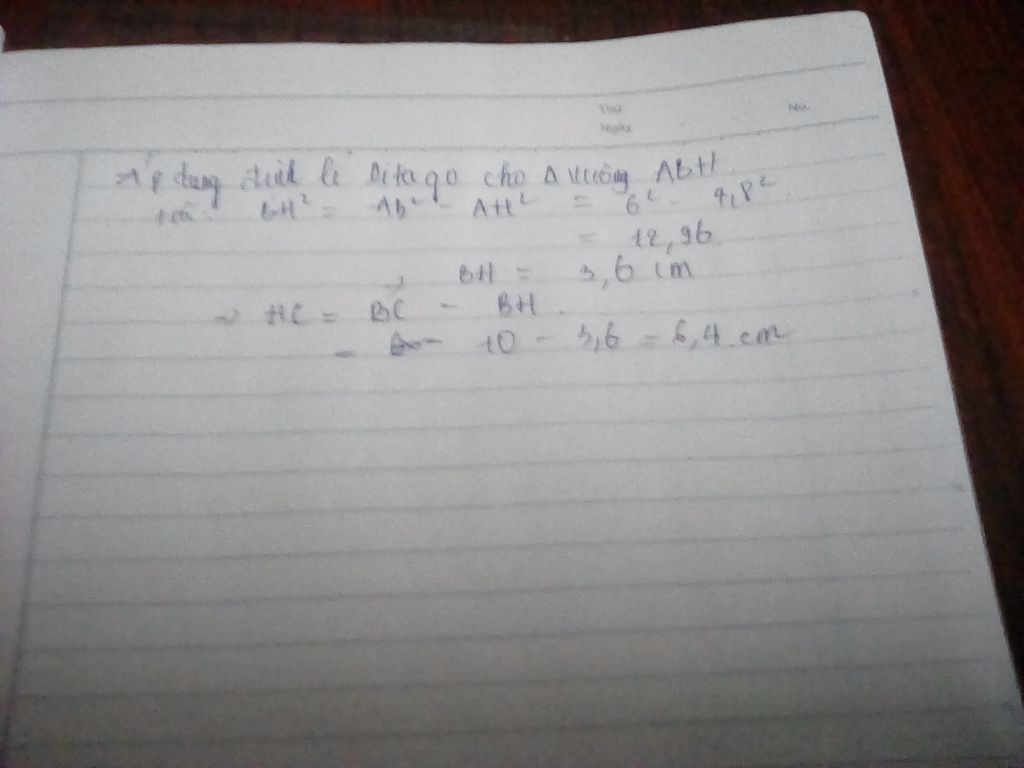 Thứ
Ngày
No.
Áp dụng định lí Pitago cho Δ vuông ABH
BH² = AB² - AH² = 6² - 4,8²
= 12,96
→ BH = 3,6 cm
→ HC = BC - BH.
= 10 - 3,6 = 6,4 cm